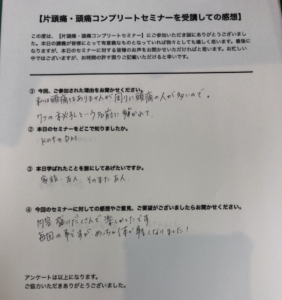 【片頭痛・頭痛コンプリートセミナーを受講しての感想】
この度は、【片頭痛・頭痛コンプリートセミナー】にご参加いただき誠にありがとうございまし
た。本日の講義が皆様にとって有意義なものとなっていれば我々としても嬉しく思います。最後に
なりますが、本日のセミナーに対する皆様のお声をお聞かせいただければと思います。お忙しい
中ではございますが、お時間の許す限りご記載いただけると幸いです。
① 今回、ご参加された理由をお聞かせください。
私は頭痛はありませんが周りに頭痛の人が多いので。
② 本日のセミナーをどこで知りましたか。
③ 本日学ばれたことを誰にしてあげたいですか。
家族、友人、そのまた友人
④ 今回のセミナーに対しての感想やご意見、ご要望がございましたらお聞かせください。
内容盛りだくさんで楽しかったです
毎回の事ですが めっちゃ体が軽くなりました！
アンケートは以上になります。
ご協力いただきありがとうございました。